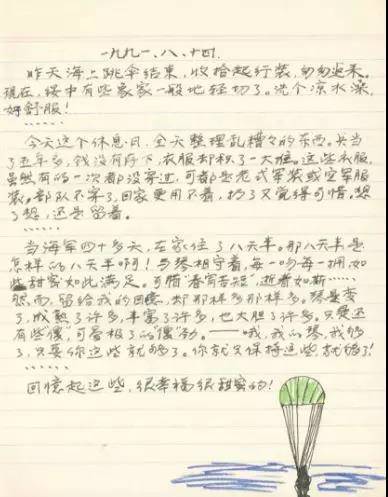 一九九一、八、十四.
昨天海上跳伞结束,收拾起行装,匆匆返来。
现在,绥中有些象家一般地轻切了。洗个凉水澡,
好舒服!
······
今天这个休息日,全天整理乱糟々的东西。兵当
了五年多,钱没有存下,衣服却积了一大堆。这些衣服,
虽然有的一次都没穿过,可都是老式军装或空军服
装。部队不穿了,回家更用不着,扔了又觉得可惜,想
了想,还是留着。
······
当海军四十多天,在家住了八天半。那八天半是
怎样的八天半啊!与琴相守着,每一吻每一拥,如
甜蜜如此满足。可惜"春宵苦短",逝者如斯……
然而,留给我的回忆,却那样多那样多。琴是变
了,成熟了许多,丰富了许多,也大胆了许多。只是还
有些"傻",可爱极了的"傻"劲。——哦,我的琴,我够
了,只要你这些就够了。你就只保持这些,就够了!
······
回忆起这些,很幸福很甜蜜的!